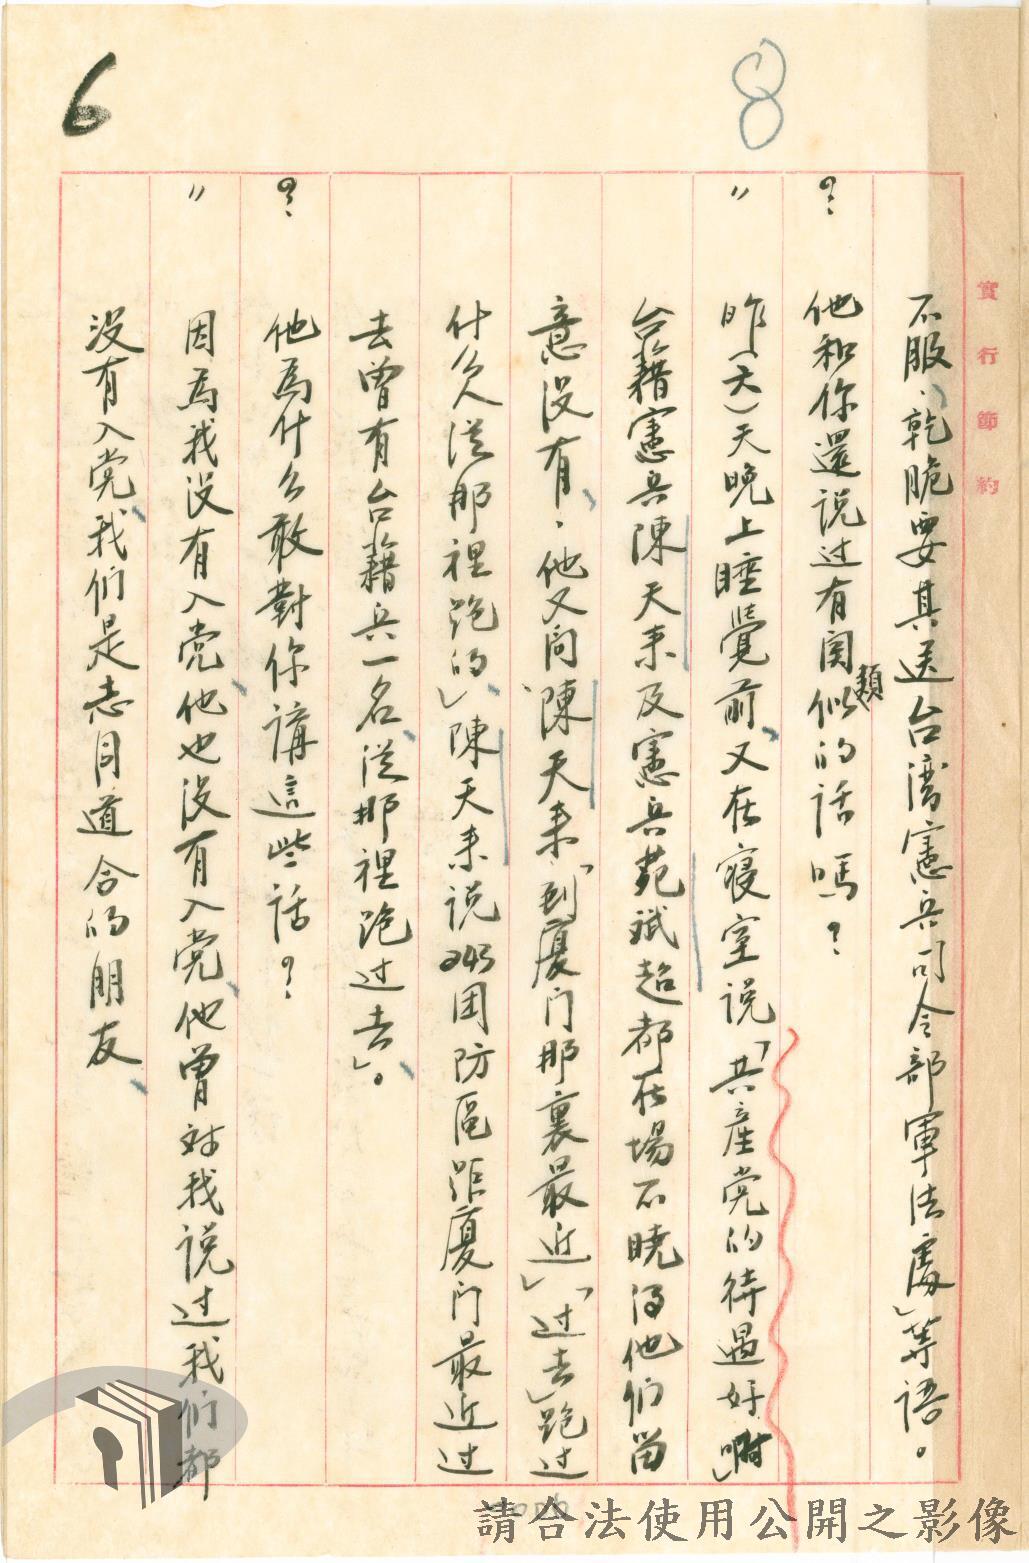 6
8
實行節約
不服、乾脆要其送台湾憲兵司令部軍法處」等語。
? 他和你還说过有関類似的话嗎?
〃 昨(天)天晚上睡覺前、又在寝室说「共産党的待遇好啊」
台籍憲兵陳天来及憲兵范斌超都在場不曉得他们留
意没有、他又问陳天来「到廈门那裏最近」「过去」跑过
什么人從那裡跑的」陳天来说245团防區距廈门最近过
去曾有台籍兵一名、從那裡跑过去」。
? 他為什么敢對你講這些话?
〃 因為我没有入党、他也没有入党、他曾对我说过我们都
没有入党、我们是志同道合的朋友、
請合法使用公開之影像